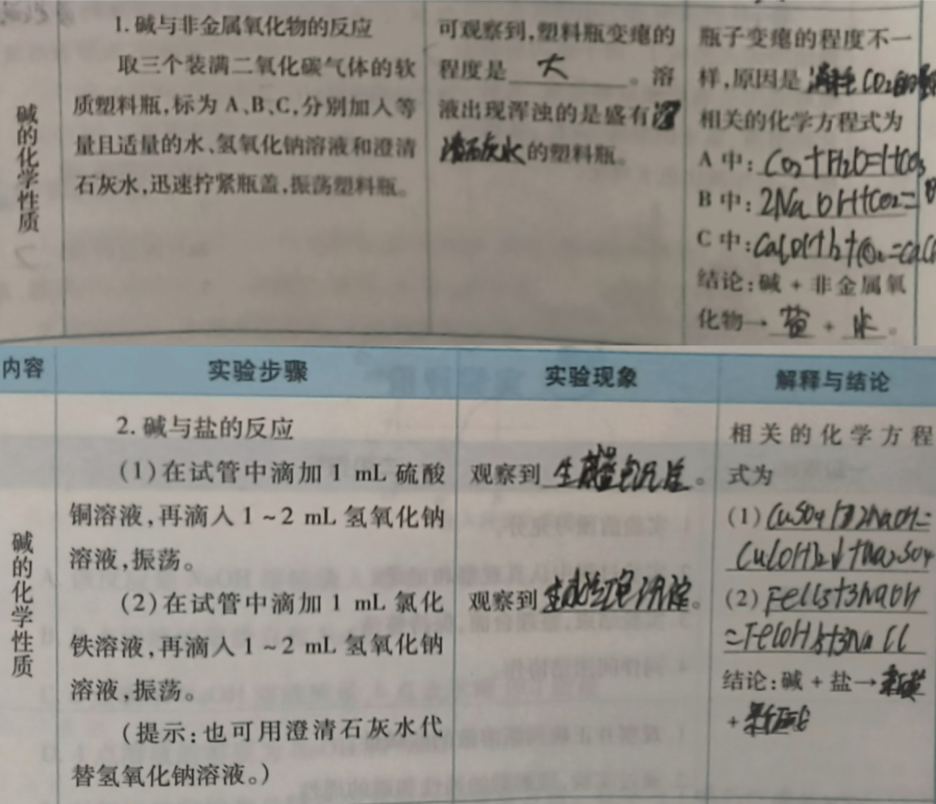 1. 碱与非金属氧化物的反应
取三个装满二氧化碳气体的软
质塑料瓶,标为 A、B、C,分别加入等
量且适量的水、氢氧化钠溶液和澄清
石灰水,迅速拧紧瓶盖,振荡塑料瓶。
可观察到,塑料瓶变瘪的
程度是 大 。溶
液出现浑浊的是盛有澄
清石灰水的塑料瓶。
瓶子变瘪的程度不一
样,原因是 消耗CO2的量
相关的化学方程式为
A 中: CO2+H2O=H2CO3
B 中: 2NaOH+CO2=
C 中: Ca(OH)2+CO2=CaC
结论:碱 + 非金属氧
化物→ 盐 + 水 。
碱的化学性质
内容
实验步骤
实验现象
解释与结论
碱的化学性质
2. 碱与盐的反应
(1)在试管中滴加 1 mL 硫酸
铜溶液,再滴入 1~2 mL 氢氧化钠
溶液,振荡。
(2)在试管中滴加 1 mL 氯化
铁溶液,再滴入 1~2 mL 氢氧化钠
溶液,振荡。
(提示:也可用澄清石灰水代
替氢氧化钠溶液。)
观察到 生成蓝色沉淀 。
观察到 生成红褐色沉淀 。
相关的化学方程
式为
(1) CuSO4+2NaOH=
Cu(OH)2↓+Na2SO4
(2) FeCl3+3NaOH
=Fe(OH)3+3NaCl
结论:碱 + 盐→ 新碱
+ 新盐